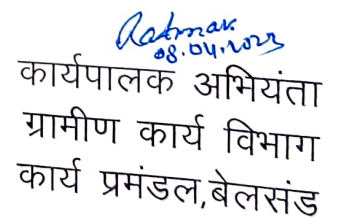 08.04.2023
कार्यपालक अभियंता
ग्रामीण कार्य विभाग
कार्य प्रमंडल,बेलसंड